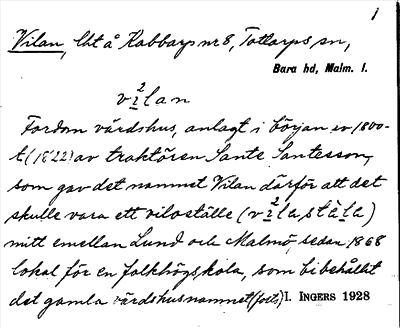 1
Vilan, lht å Kabbarp nr 8, Tottarps sn,
Bara hd, Malm. l.
vi²lan
Fordom värdshus, anlagt i början av 1800-
t (1822) av traktören Sante Santesson,
som gav det namnet Vilan därför att det
skulle vara ett viloställe (vi²la, stäla)
mitt emellan Lund och Malmö, sedan 1868
lokal för en folkhögskola, som bibehållit
det gamla värdshusnamnet I. INGERS 1928